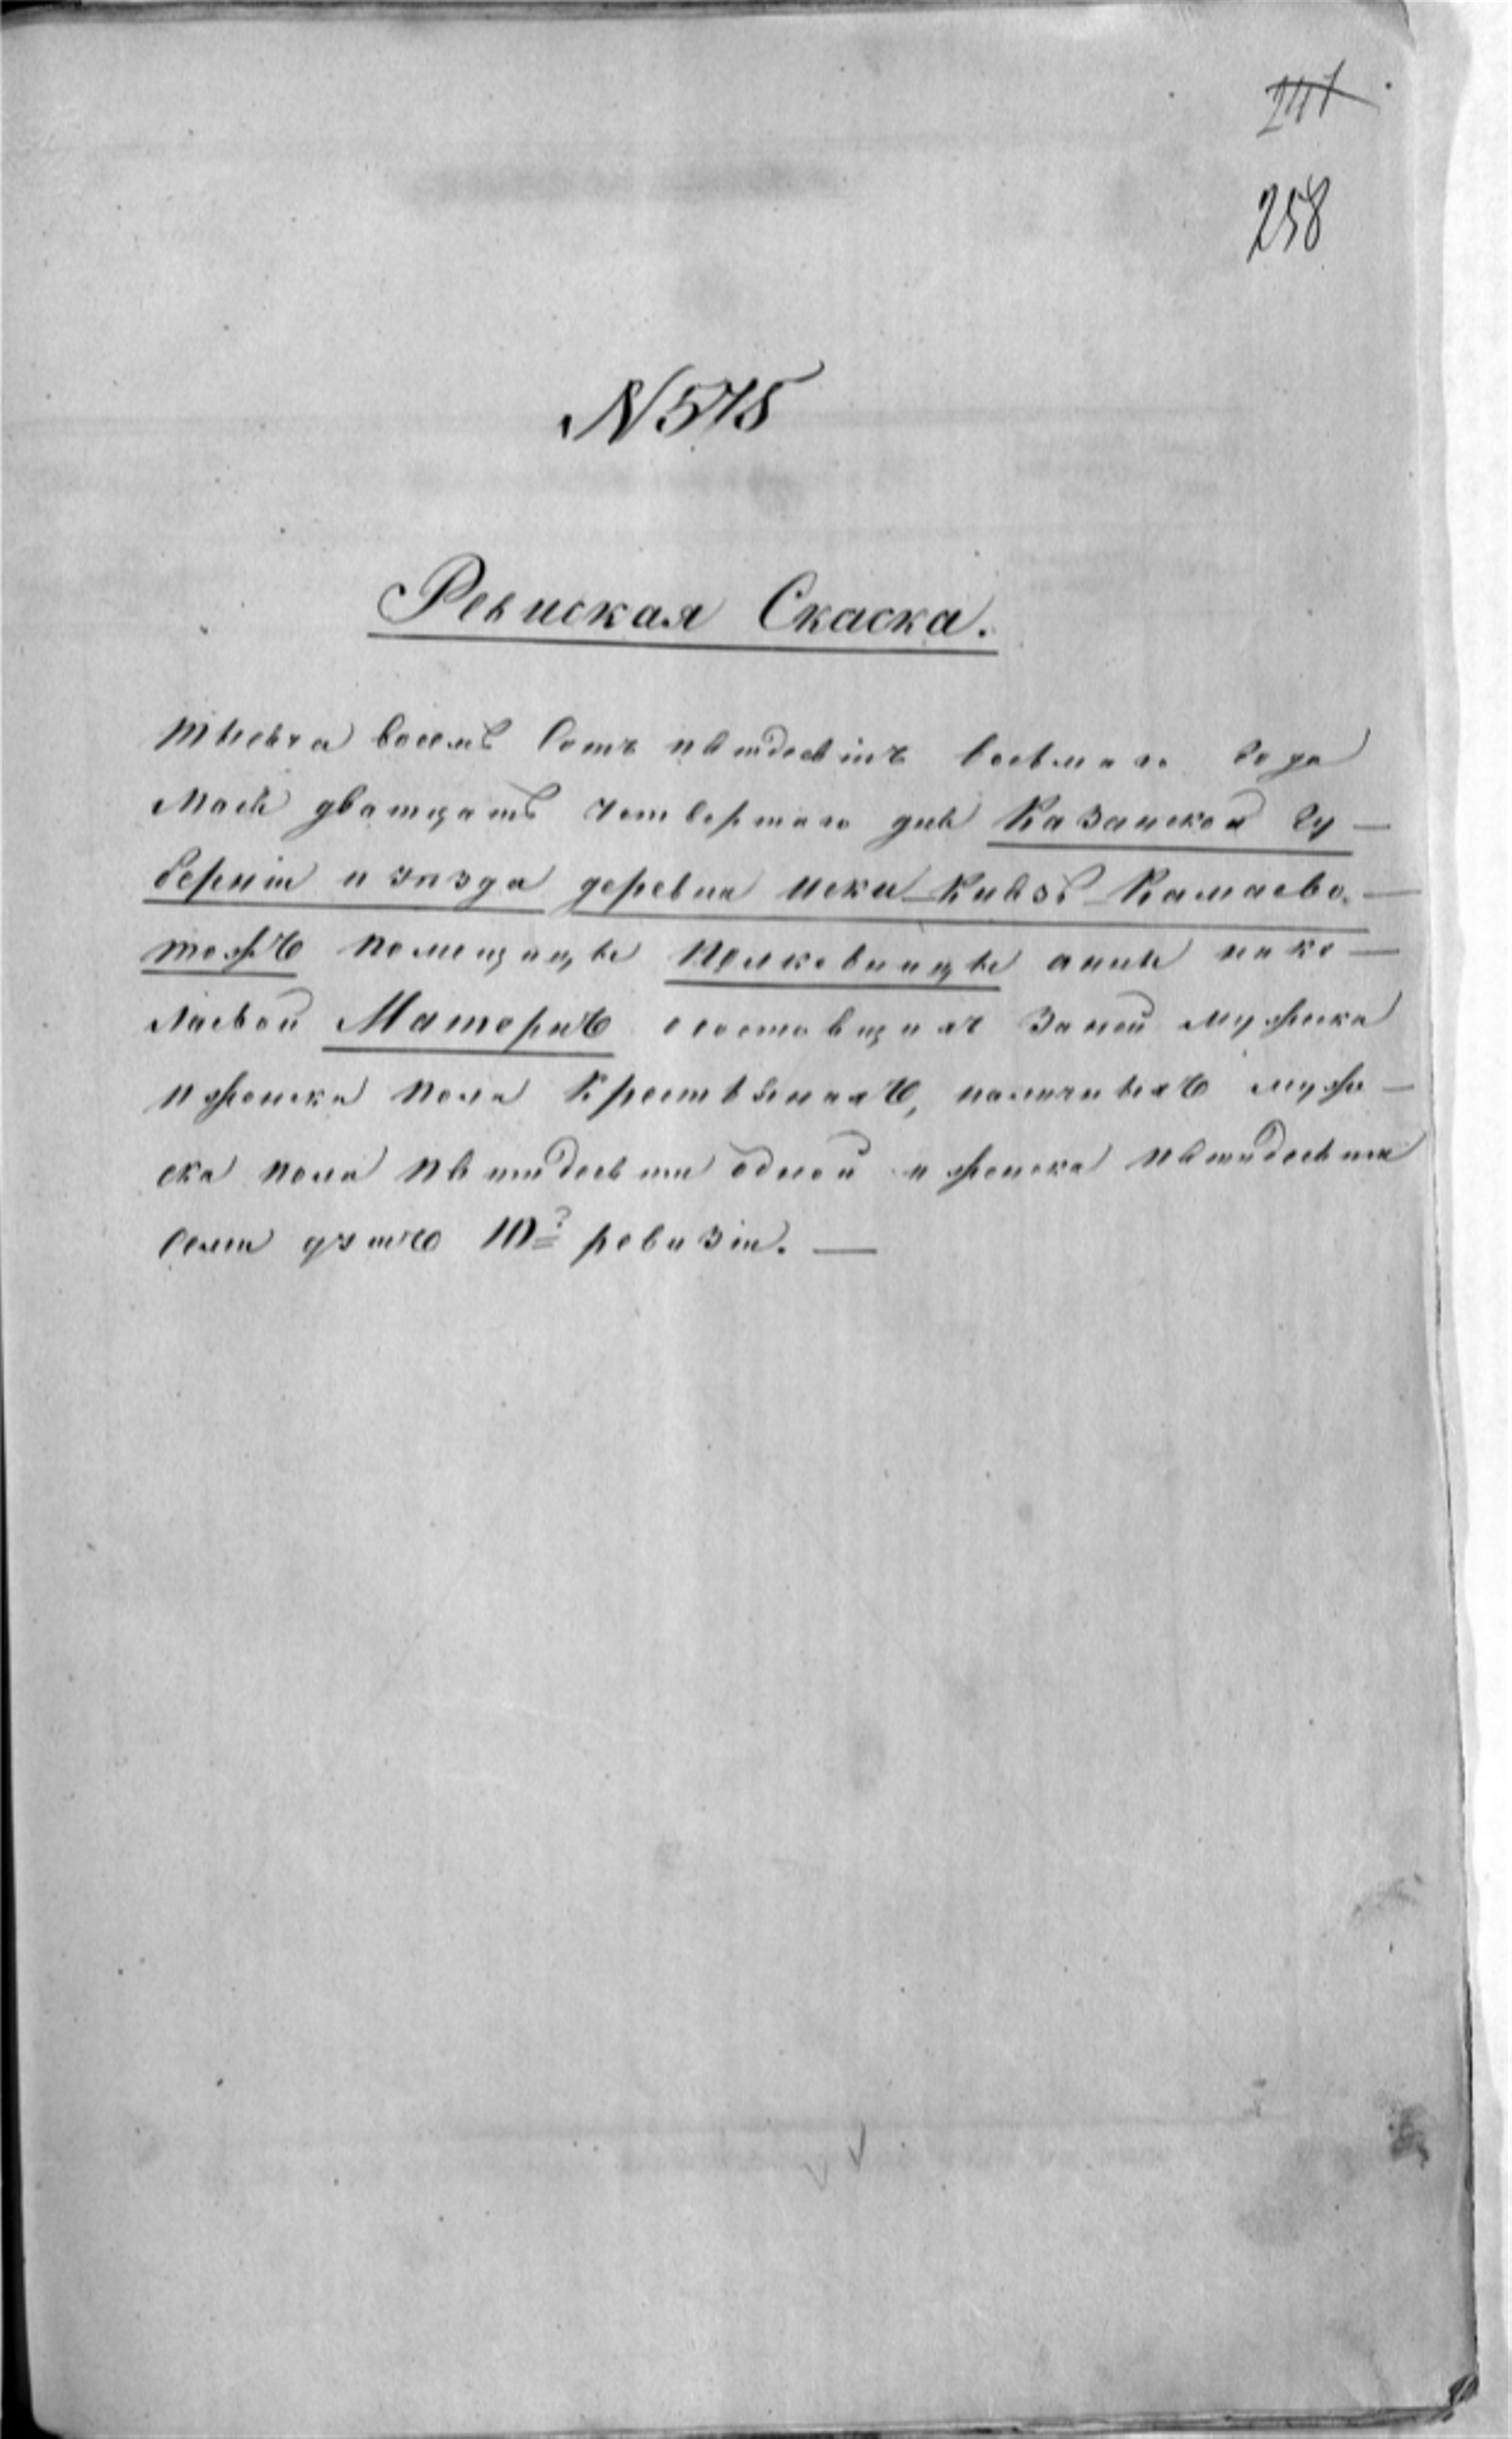 241
258
N 575
Ревиская Скаска.
тысеча восемь сотъ пятдесятъ восьмаго года
Мая дватцать четвертаго дня Казанской гу —
берніи и уѣзда деревни Иски-Князь-Камаево. —
тожъ помещицы Полковницы анны нико —
лаевой Матернъ о состоящихъ Заней мужска
и женска пола Крестьянахъ, наличныхъ муже —
ска пола пятидесяти одной и женска пятидесяти
семи душъ 10й ревизіи. —